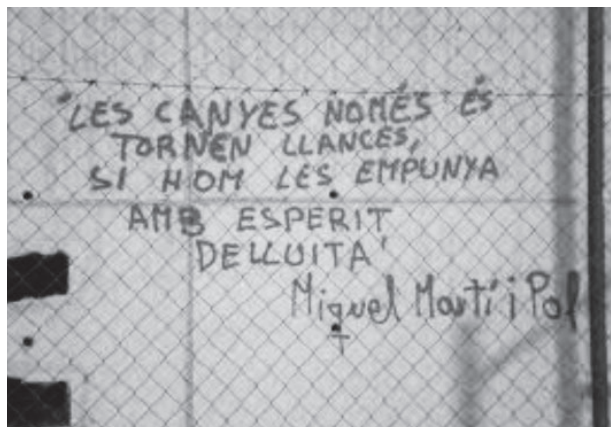 "LES CANYES NOMÉS ÉS
TORNEN LLANCES,
SI HOM LES EMPUNYA
AMB ESPERIT
DE LLUITA'
Miquel Martí i Pol